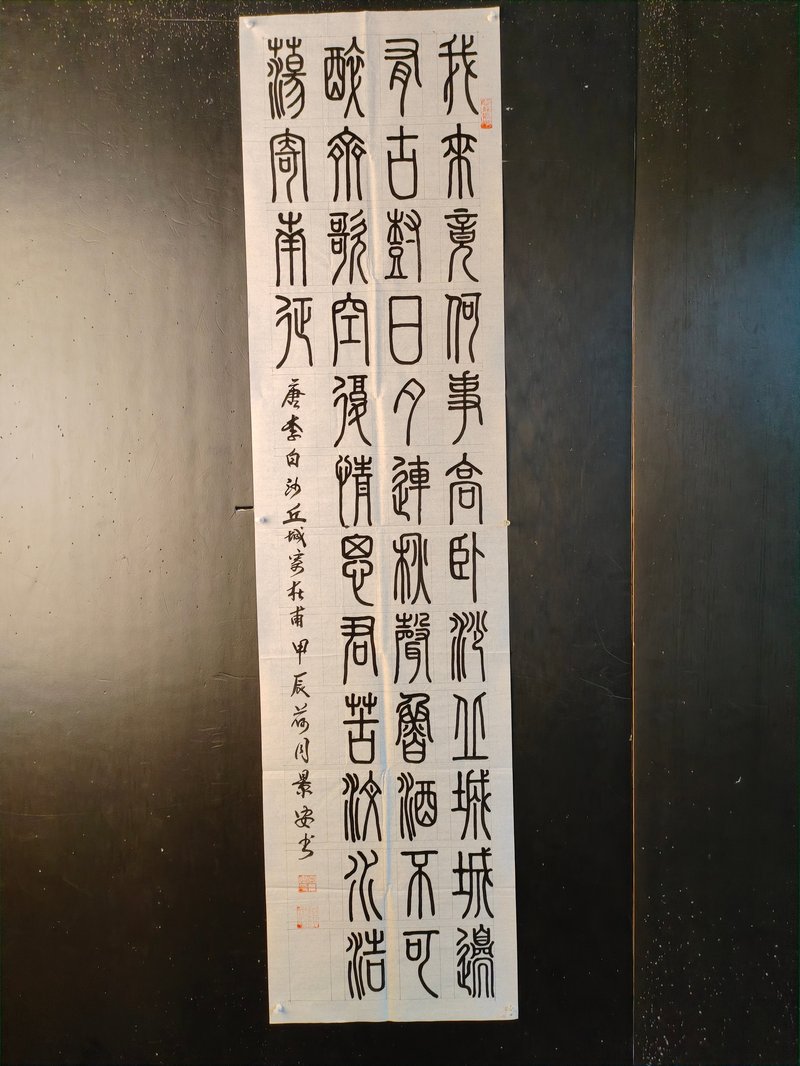 我來竟何事高臥沙丘城城邊
有古樹日夕連秋聲魯酒不可
醉齊歌空復情思君苦汶水浩
蕩寄南征
唐李白沙丘城寄杜甫甲辰荷月景安书